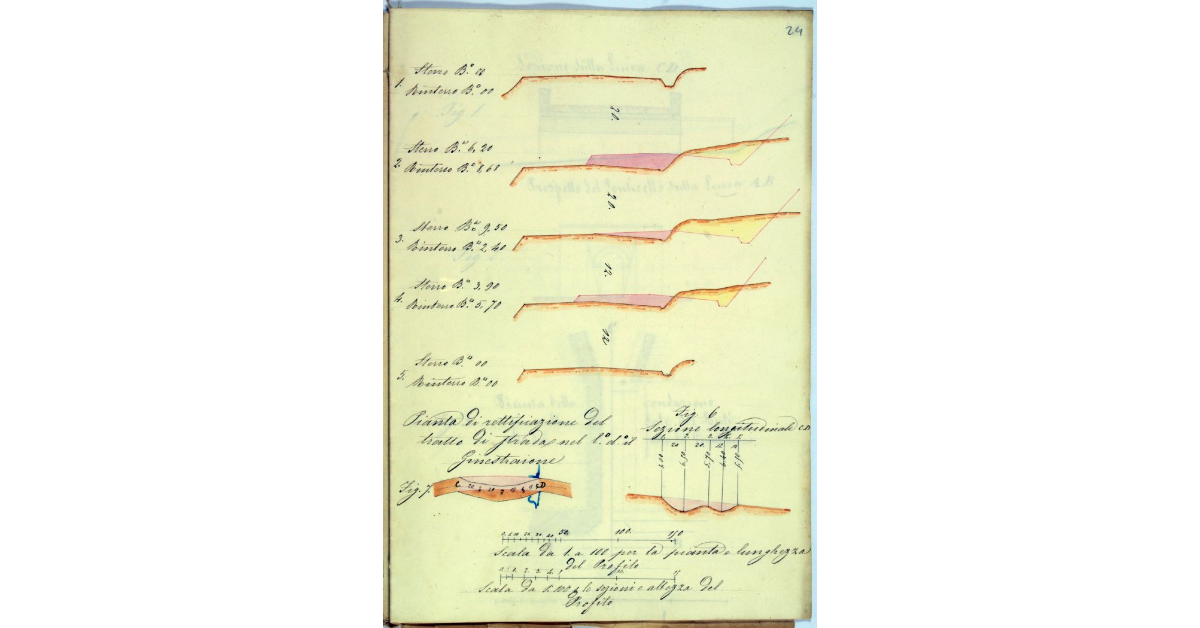 24
1. Sterro B.o 00
Rinterro B.o 00
20.
2. Sterro B.o 6,20
Rinterro B.o 8,61
20.
3. Sterro B.o 9,50
Rinterro B.o 2,40
12.
4. Sterro B.o 3,90
Rinterro B.o 5,70
12
5. Sterro B.o 00
Rinterro B.o 00
Pianta di rettificazione del
tratto di strada nel l.o d.o il
Ginestraione
Fig. 7.
Fig. 6
Sezione longitudinale C D
20. 20.
50. 100.
Scala da 1 a 100 per la pianta e lunghezza
del Profilo
Scala da 1. 100 p le sezioni e altezza del
Profilo